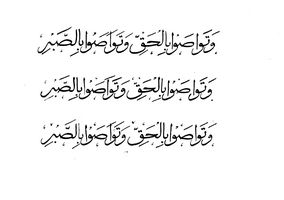 وَتَوَاصَوْا بِالْحَقِّ وَتَوَاصَوْا بِالصَّبْرِ
وَتَوَاصَوْا بِالْحَقِّ وَتَوَاصَوْا بِالصَّبْرِ
وَتَوَاصَوْا بِالْحَقِّ وَتَوَاصَوْا بِالصَّبْرِ